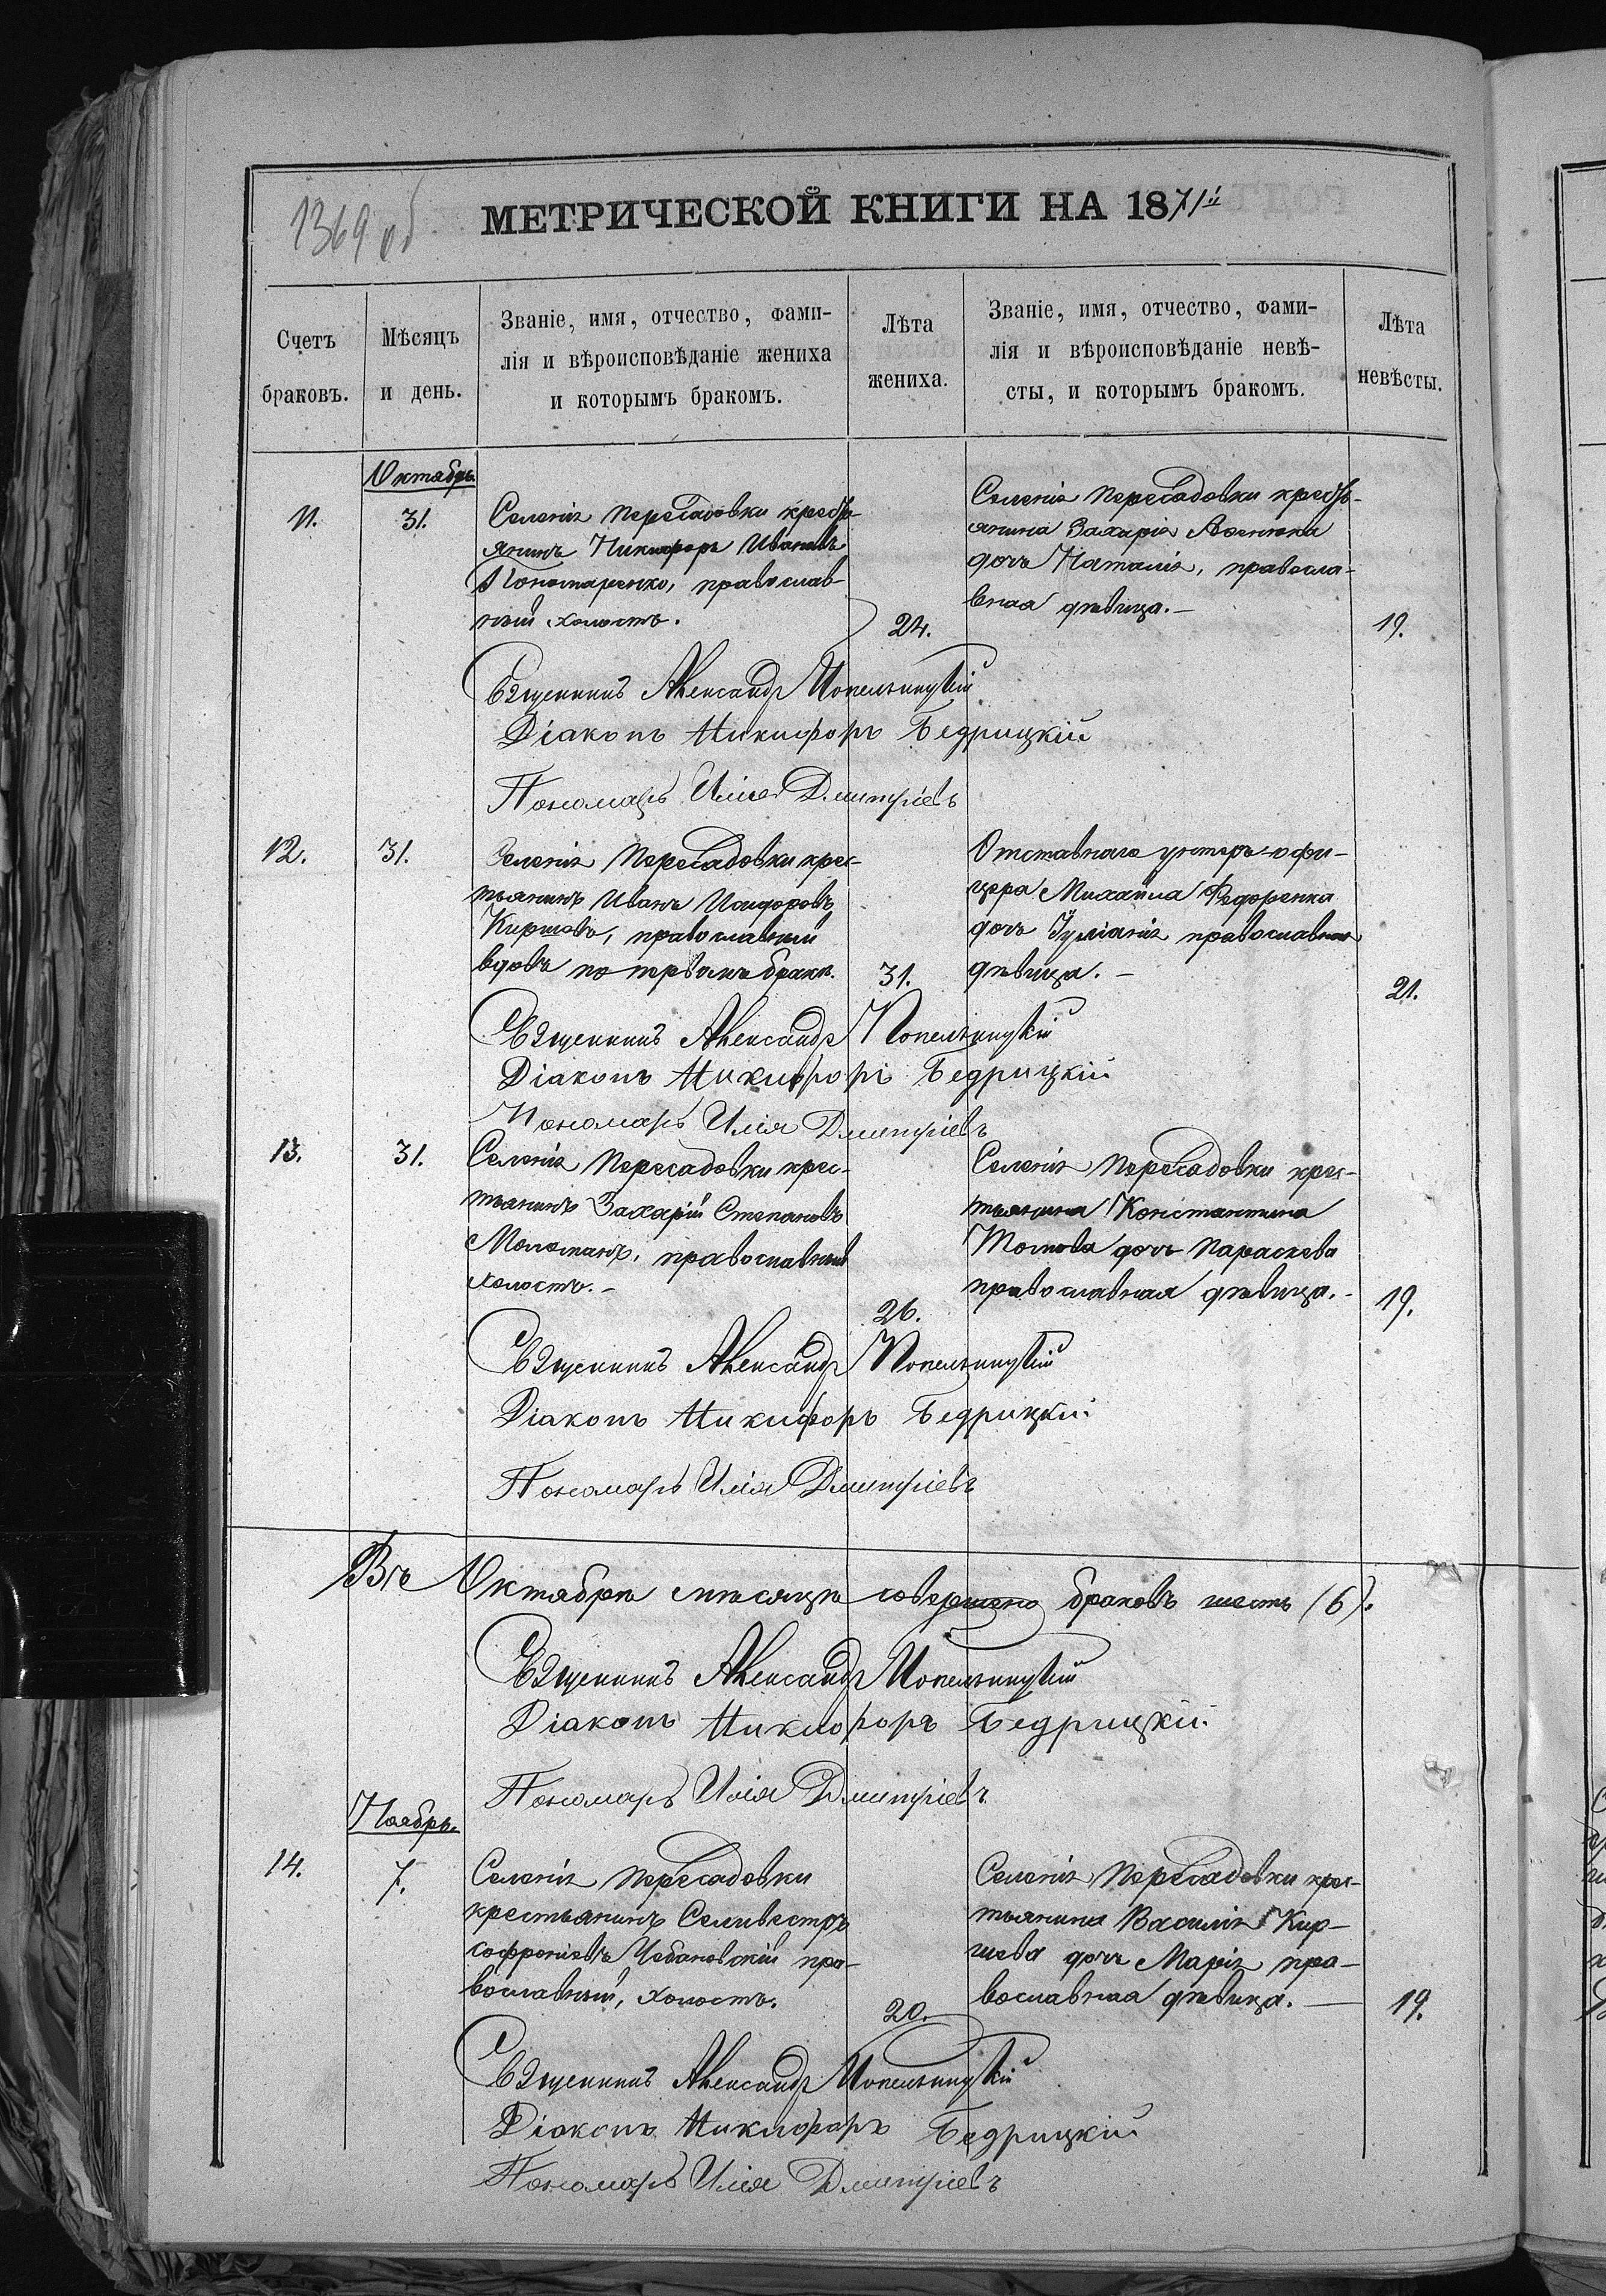 1369 об
МЕТРИЧЕСКОЙ КНИГИ НА 1871й
Счетъ браковъ.
Мѣсяцъ и день.
Званіе, имя, отчество, фами-
лія и вѣроисповѣданіе жениха
и которымъ бракомъ.
Лѣта жениха.
Званіе, имя, отчество, фами-
лія и вѣроисповѣданіе невѣ-
сты, и которымъ бракомъ.
Лѣта невѣсты.
Октябрь
11.
31.
Селенія Пересадовки кресть-
янинъ Никифоръ Ивановъ
Пономаренко, православ-
ный холостъ.
24.
Селенія Пересадовки кресть-
янина Захарія
дочь Наталія, правосла-
вная дѣвица.—
19.
Священникъ Александръ Попельницкій
Діаконъ Никифоръ Бедрицкій
Пономарь Илія Дмитріевъ
12.
31.
Селенія Пересадовки крес-
тьянинъ Иванъ Исидоровъ
Киршовъ, православный
вдовъ по первомъ бракѣ.
31.
Отставнаго унтеръ-офи-
цера Михаила Федоренка
дочь Іуліанія православная
дѣвица.—
21.
Священникъ Александръ Попельницкій
Діаконъ Никифоръ Бедрицкій
Пономарь Илія Дмитріевъ
13.
31.
Селенія Пересадовки крес-
тьянинъ Захарій Степановъ
Моломанъ, православный
холостъ.—
26.
Селенія Пересадовки крес-
тьянина Константина
дочь Параскева
православная дѣвица.—
19.
Священникъ Александръ Попельницкій
Діаконъ Никифоръ Бедрицкій
Пономарь Илія Дмитріевъ
Въ Октябрѣ мѣсяцѣ совершено браковъ шесть (6).
Священникъ Александръ Попельницкій
Діаконъ Никифоръ Бедрицкій
Пономарь Илія Дмитріевъ
Ноябрь.
14.
7.
Селенія Пересадовки
крестьянинъ Селивестръ
Софроніевъ Чебановскій пра-
вославный, холостъ.
20.
Селенія Пересадовки крес-
тьянина Василія Кир-
шева дочь Марія пра-
вославная дѣвица.—
19.
Священникъ Александръ Попельницкій
Діаконъ Никифоръ Бедрицкій
Пономарь Илія Дмитріевъ